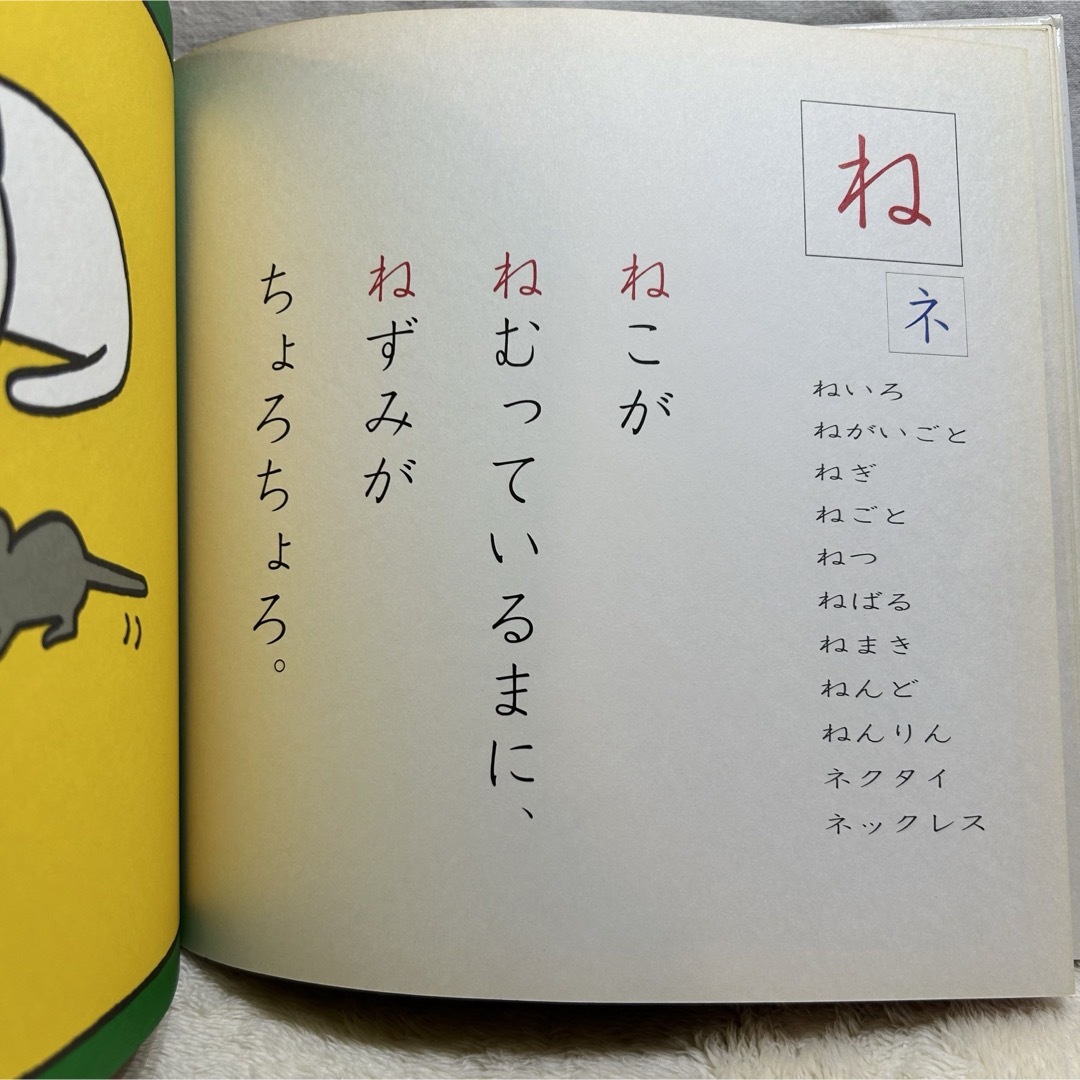 ね
ネ
ねいろ
ねがいごと
ねぎ
ねごと
ねつ
ねばる
ねまき
ねんど
ねんりん
ネクタイ
ネックレス
ねこが
ねむっているまに、
ねずみが
ちょろちょろ。